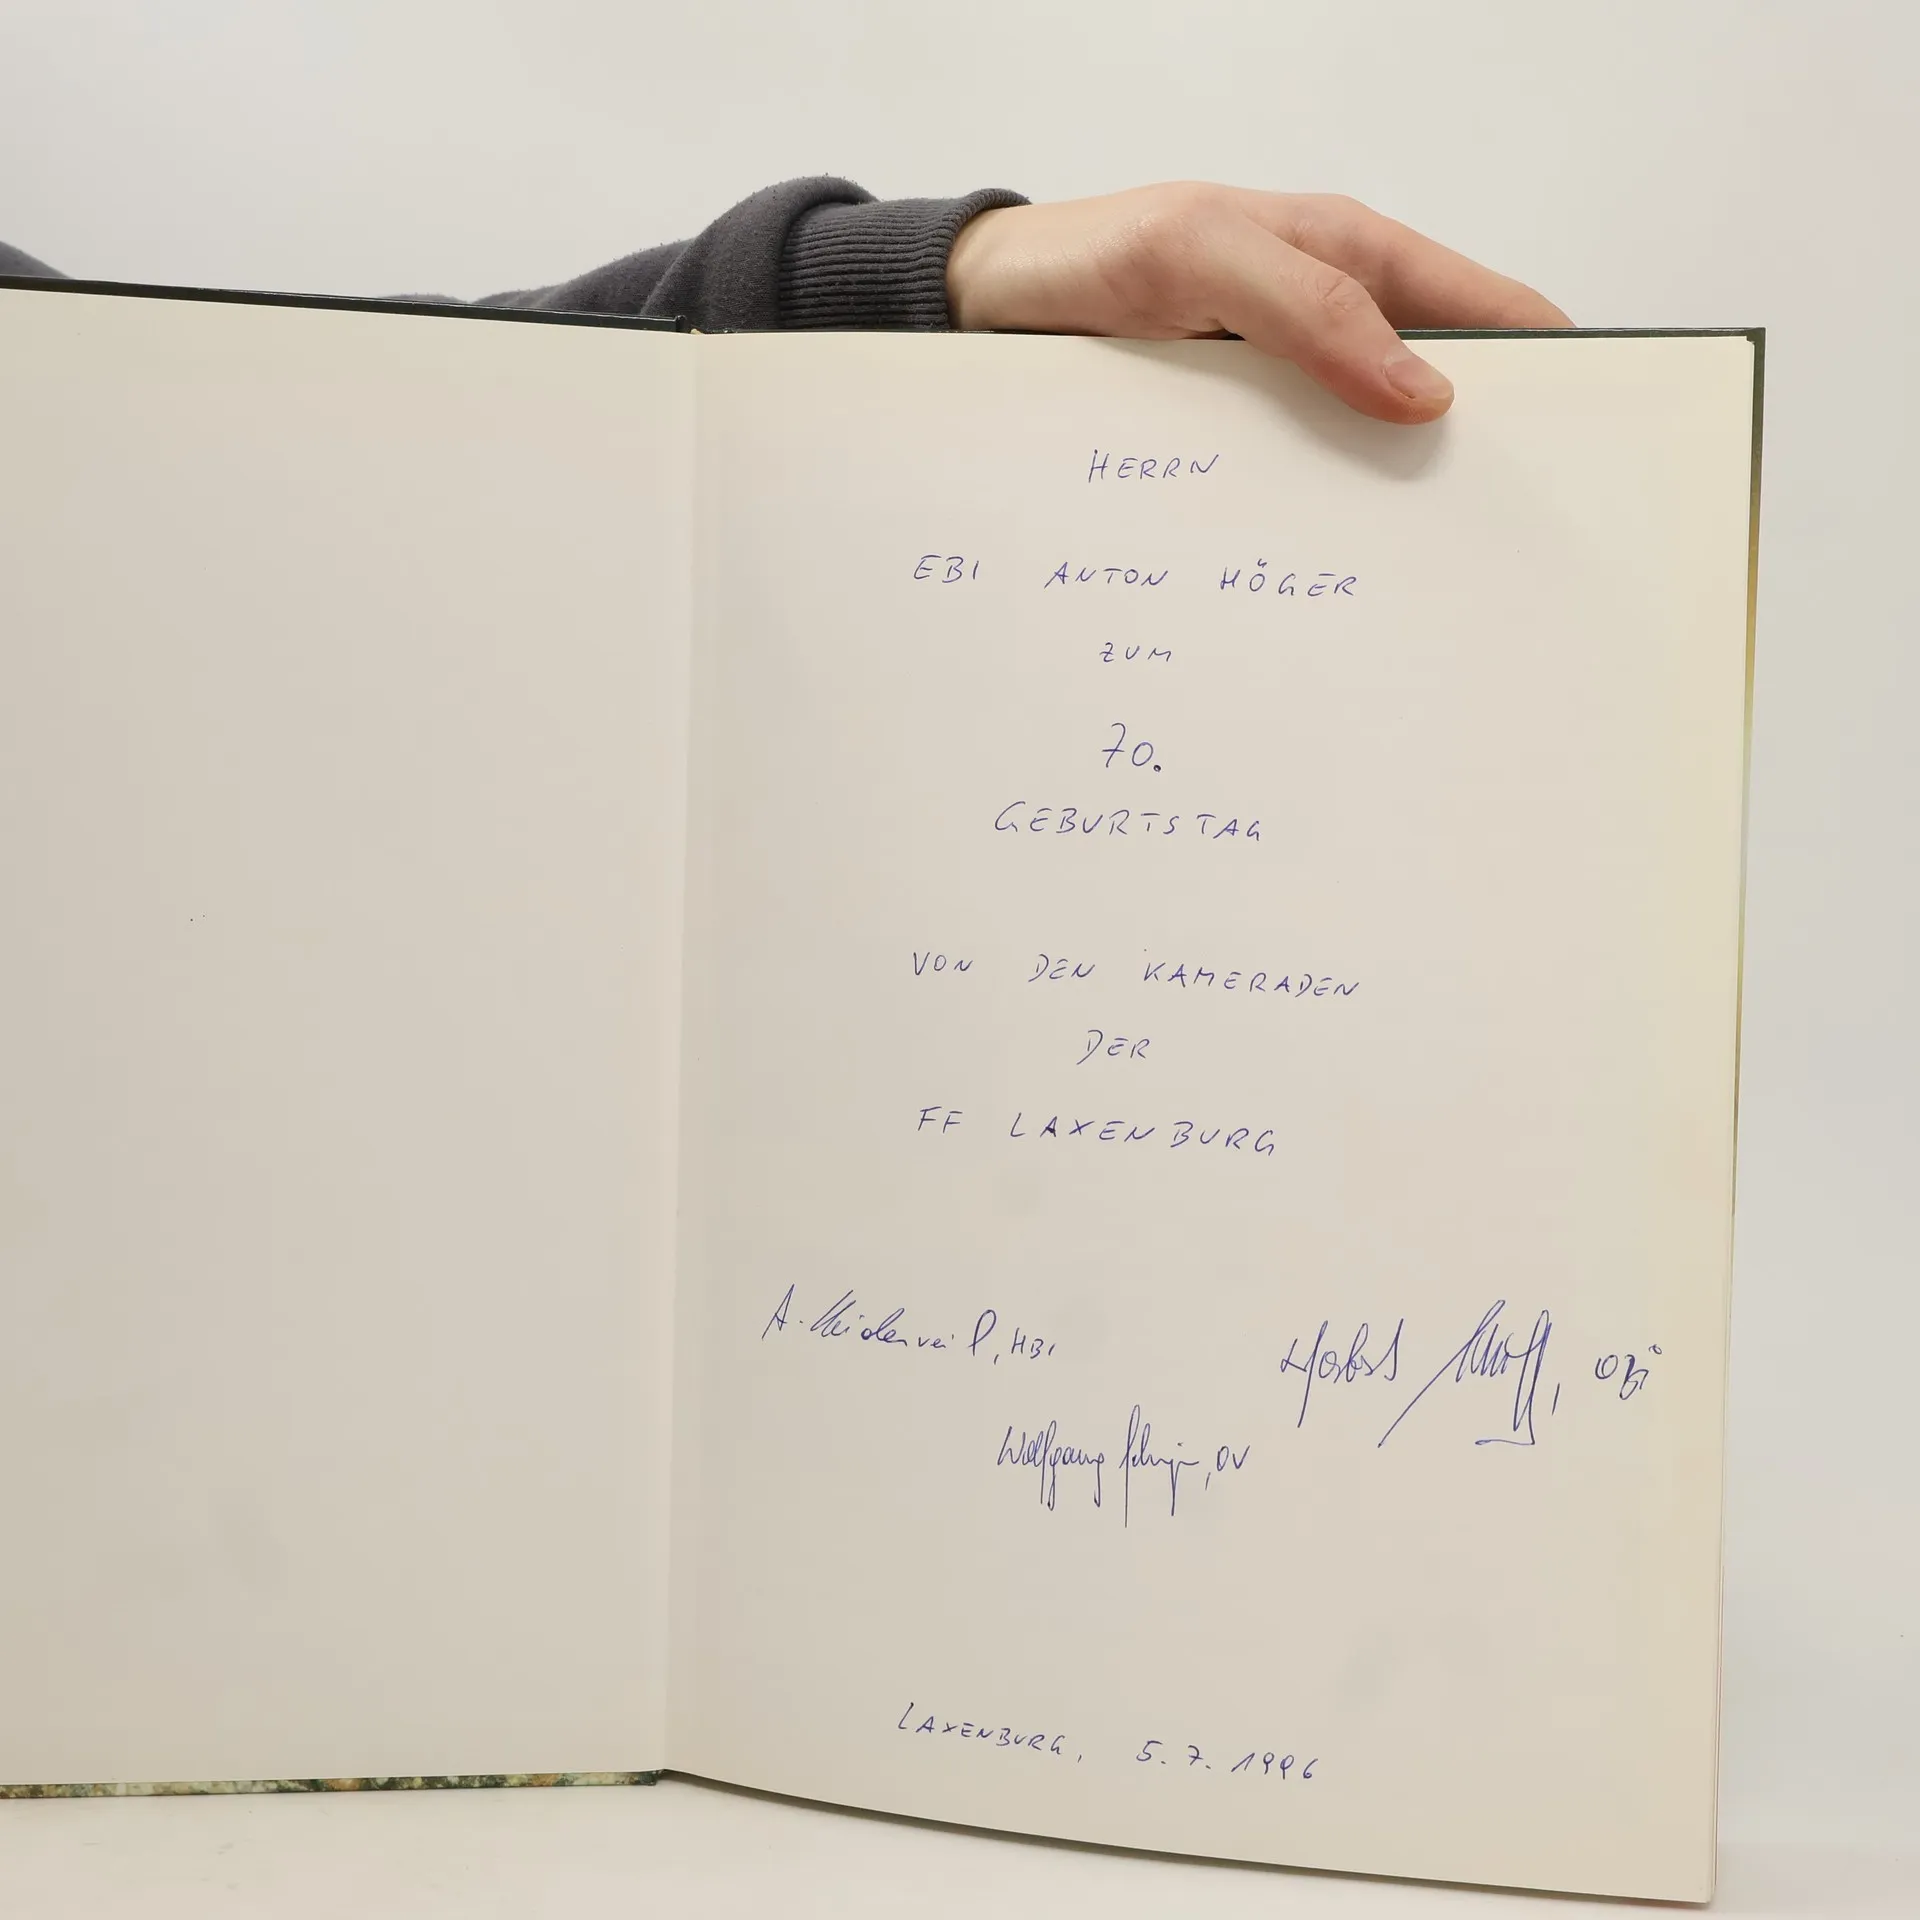 HERRN
EBI ANTON HÖGER
ZUM
70.
GEBURTSTAG
VON DEN KAMERADEN
DER
FF LAXENBURG
A. , HBI
Herbst , OBI
Wolfgang , OV
LAXENBURG, 5.7.1996